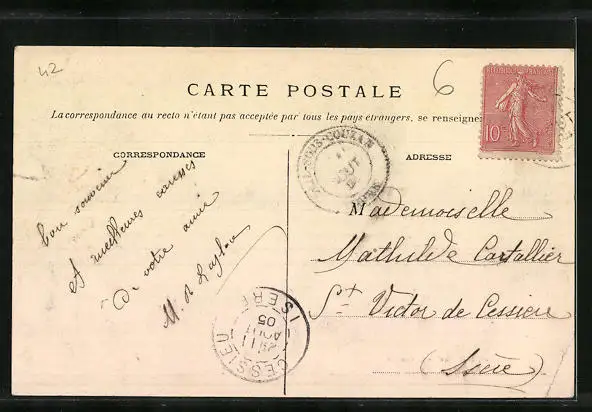 42
6
CARTE POSTALE
La correspondance au recto n'étant pas acceptée par tous les pays étrangers, se renseigne
REPUBLIQUE FRANÇAISE
10
CORRESPONDANCE
ADRESSE
SOUS-COUZAN
AOUT
bon souvenir
et meilleures
De votre amie
M.
Mademoiselle
Mathilde Cartallier
St Victor de Cessieu
(Isère)
CESSIEU
11
AOUT
05
ISERE